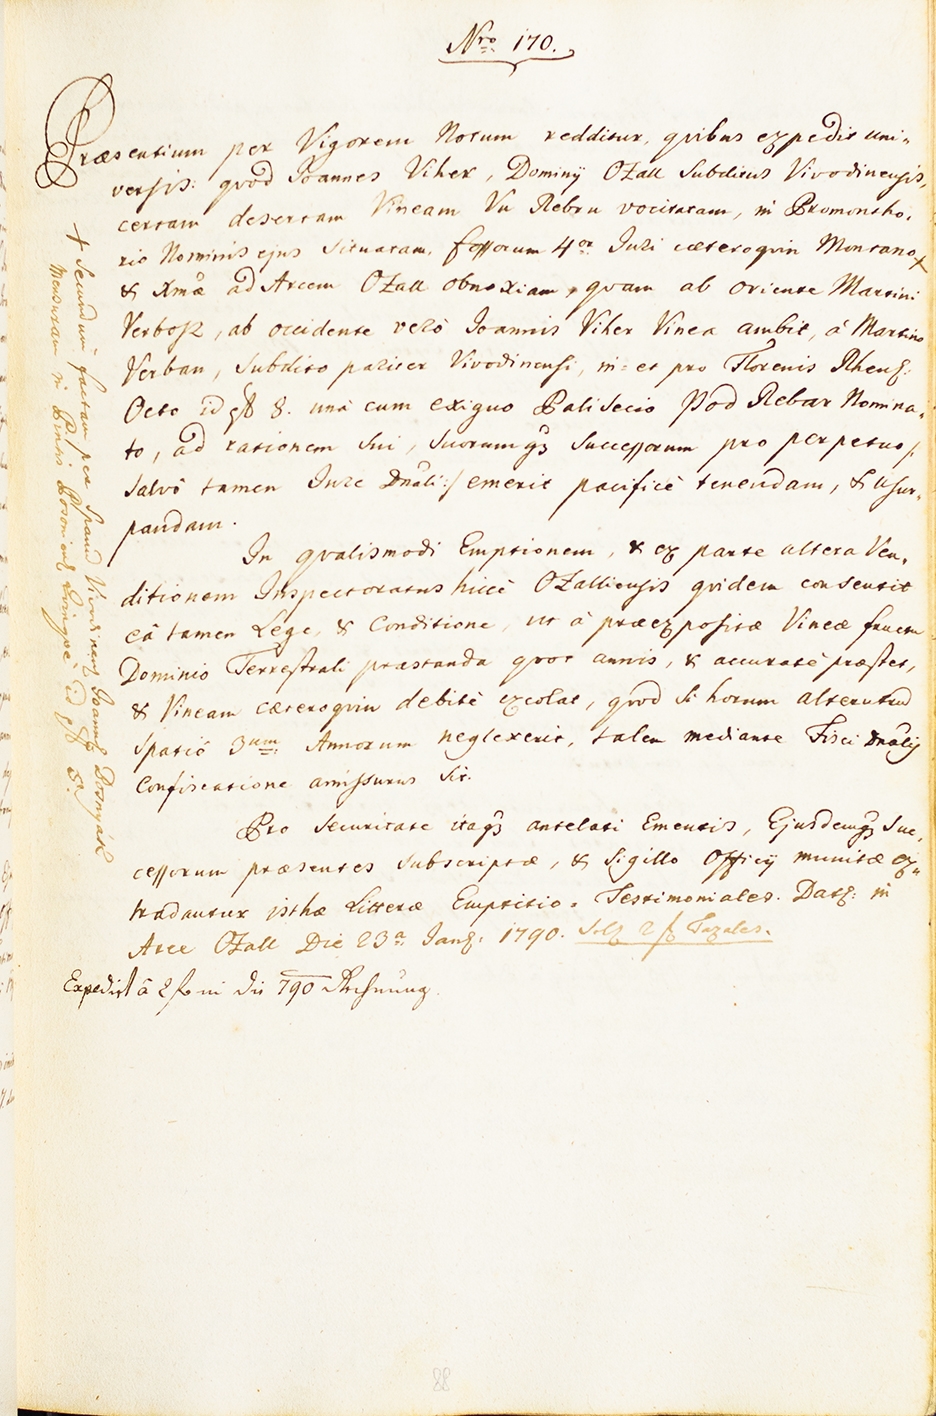 Nro 170.
Præsentium per Vigorem Notum redditur, quibus expedit uni-
versis: quod Joannes Viher, Dominij Ozall Subditus Vivodinensis,
certam desertam Vineam Vu Rebru vocitatam, in Promontho-
rio Nominis ejus situatam, fossorum 4or Juri cæteroquin Montano
& Xmæ ad Arcem Ozall obnoxiam, quam ab oriente Martini
Verbosz, ab occidente verò Joannis Viher Vinea ambit, á Martino
Verban, Subdito pariter Vivodinensi, in- et pro Florenis Rhens:
Octo id est 8. unà cum exiguo Palisecio Pod Rebar Nomina-
to, ad rationem sui, suorumq3 Successorum pro perpetuo /:
salvô tamen Jure Dnali:/ emerit pacificè tenendam, & usur-
pandam.
In qualismodi Emptionem, & ex parte altera Ven-
ditionem Inspectoratus hicce Ozalliensis quidem consentit
eâ tamen Lege, & Conditione, ut à præexpositæ Vineæ fructu
Dominio Terrestrali præstanda quot annis, & accuratè præstet,
& Vineam cæteroquin debitè excolat, quod si horum alterutrud
spatiô 3um Annorum neglexerit, talem mediante Fisci Dnalis
Confiscatione amissurus sit.
Pro securitate itaq3 antelati Ementis, Ejusdemq3 Suc-
cessorum præsentes subscriptæ, & Sigillo Officij munitæ ex-
tradantur isthæ Litteræ Emptitio-Testimoniales. Dat: in
Arce Ozall Die 23a Jan: 1790. Solv 2 f Taxales.
+ Secundum factam per Spand Vivodinens Joannem Bosnyák
Mensuram in Pintis Posoniens quinque id est 5.
Expedirt â 2 f in die 790